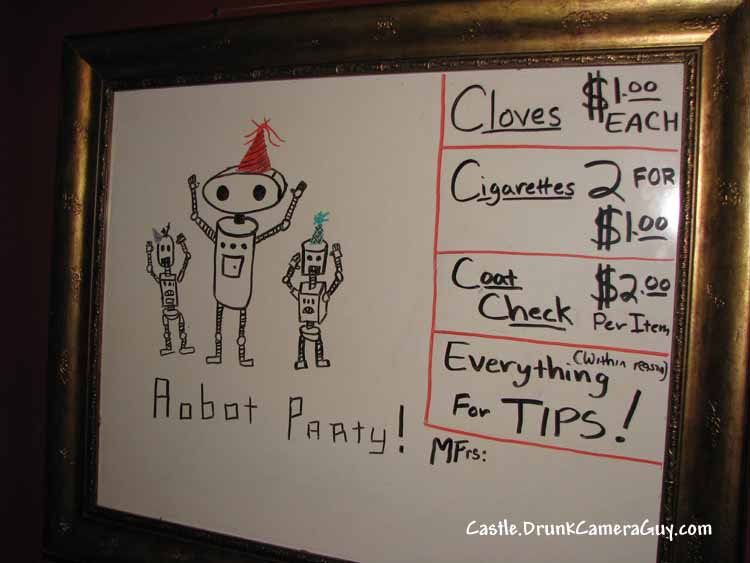 Cloves $1.00
EACH
Cigarettes 2 FOR
$1.00
Coat $2.00
Check Per Item
Everything (Within reason)
For TIPS!
MFrs:
Robot Party!
Castle.DrunkCameraGuy.com